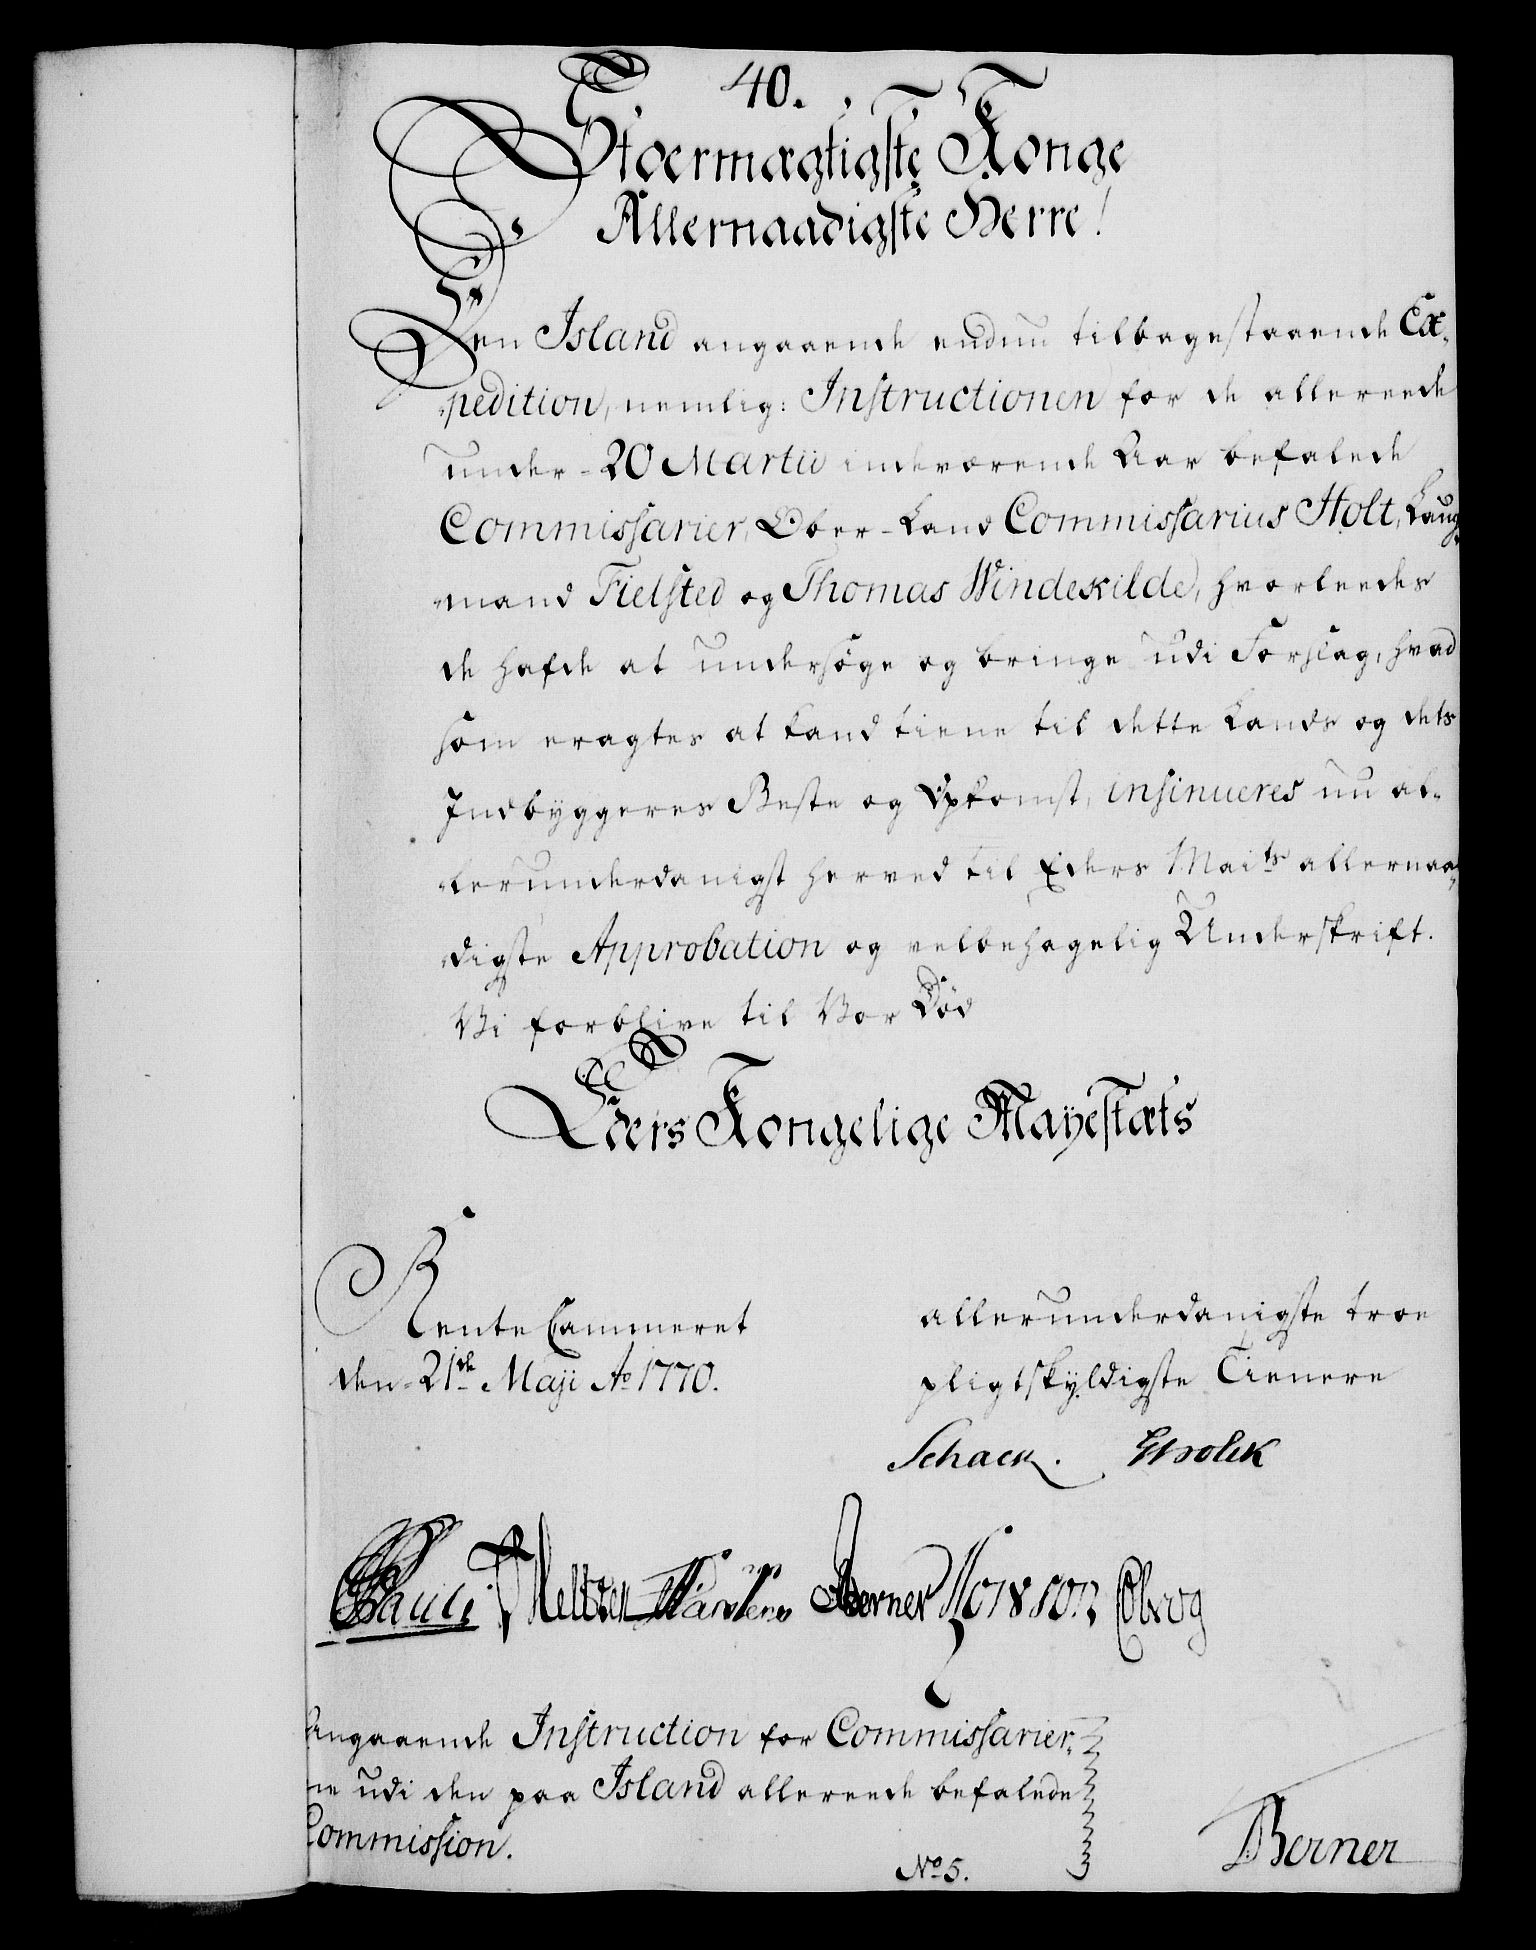 40.
Stoermægtigste Konge
Allernaadigste Herre!
Den Island angaaende endnu tilbagestaaende Ex-
pedition, nemlig: Instructionen for de allereede
under 20 Martii indeværende Aar befalede
Commissarier, Ober-Land Commissarius Holt, Laug-
mand Fielsted og Thomas Windekilde, hvorleedes
de hafde at undersøge og bringe udi Forslag, hvad
som eragtes at kand tiene til dette Lands og dets
Indbyggeres Beste og Opkomst, insinueres nu al-
lerunderdanigst herved til Eders Maits allernaa-
digste Approbation og velbehagelig Underskrift.
Vi forblive til Vor Død
Eders Kongelige Mayestæts
Rente Cammeret
den 21de Maji Ao 1770.
allerunderdanigste troe
pligtskyldigste Tienere
Schack.
Pauli Meltzer Martens Berner
Angaaende Instruction for Commissarier-
ne udi den paa Island allereede befalede
Commission.
No 5.
Berner